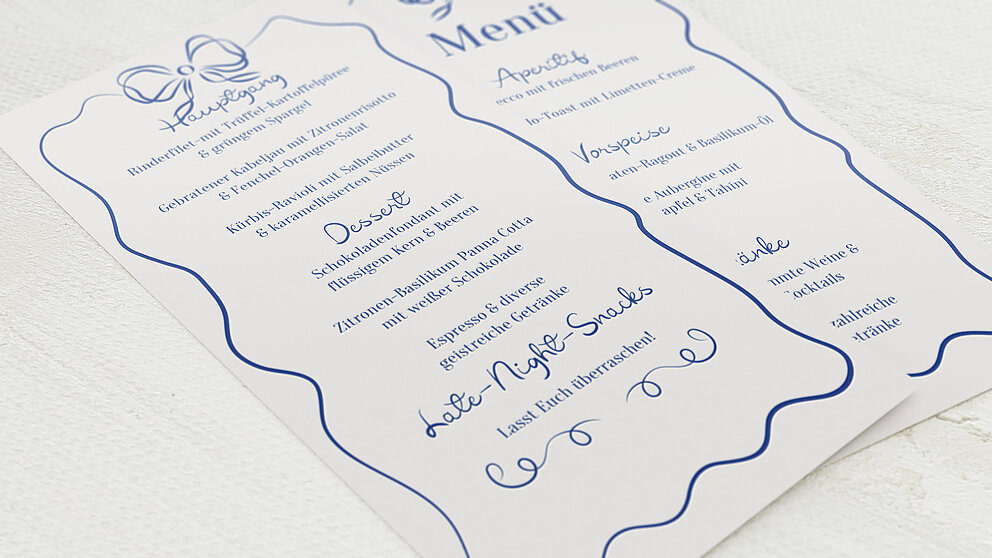 Hauptgang
Rinderfilet mit Trüffel-Kartoffelpüree
& grüngem Spargel
Gebratener Kabeljau mit Zitronenrisotto
& Fenchel-Orangen-Salat
Kürbis-Ravioli mit Salbeibutter
& karamellisierten Nüssen
Dessert
Schokoladenfondant mit
flüssigem Kern & Beeren
Zitronen-Basilikum Panna Cotta
mit weißer Schokolade
Espresso & diverse
geistreiche Getränke
Late-Night-Snacks
Lasst Euch überraschen!
Menü
Aperitif
ecco mit frischen Beeren
do-Toast mit Limetten-Creme
Vorspeise
aten-Ragout & Basilikum-Öl
e Aubergine mit
apfel & Tahini
änke
mmte Weine &
ocktails
zahlreiche
tränke